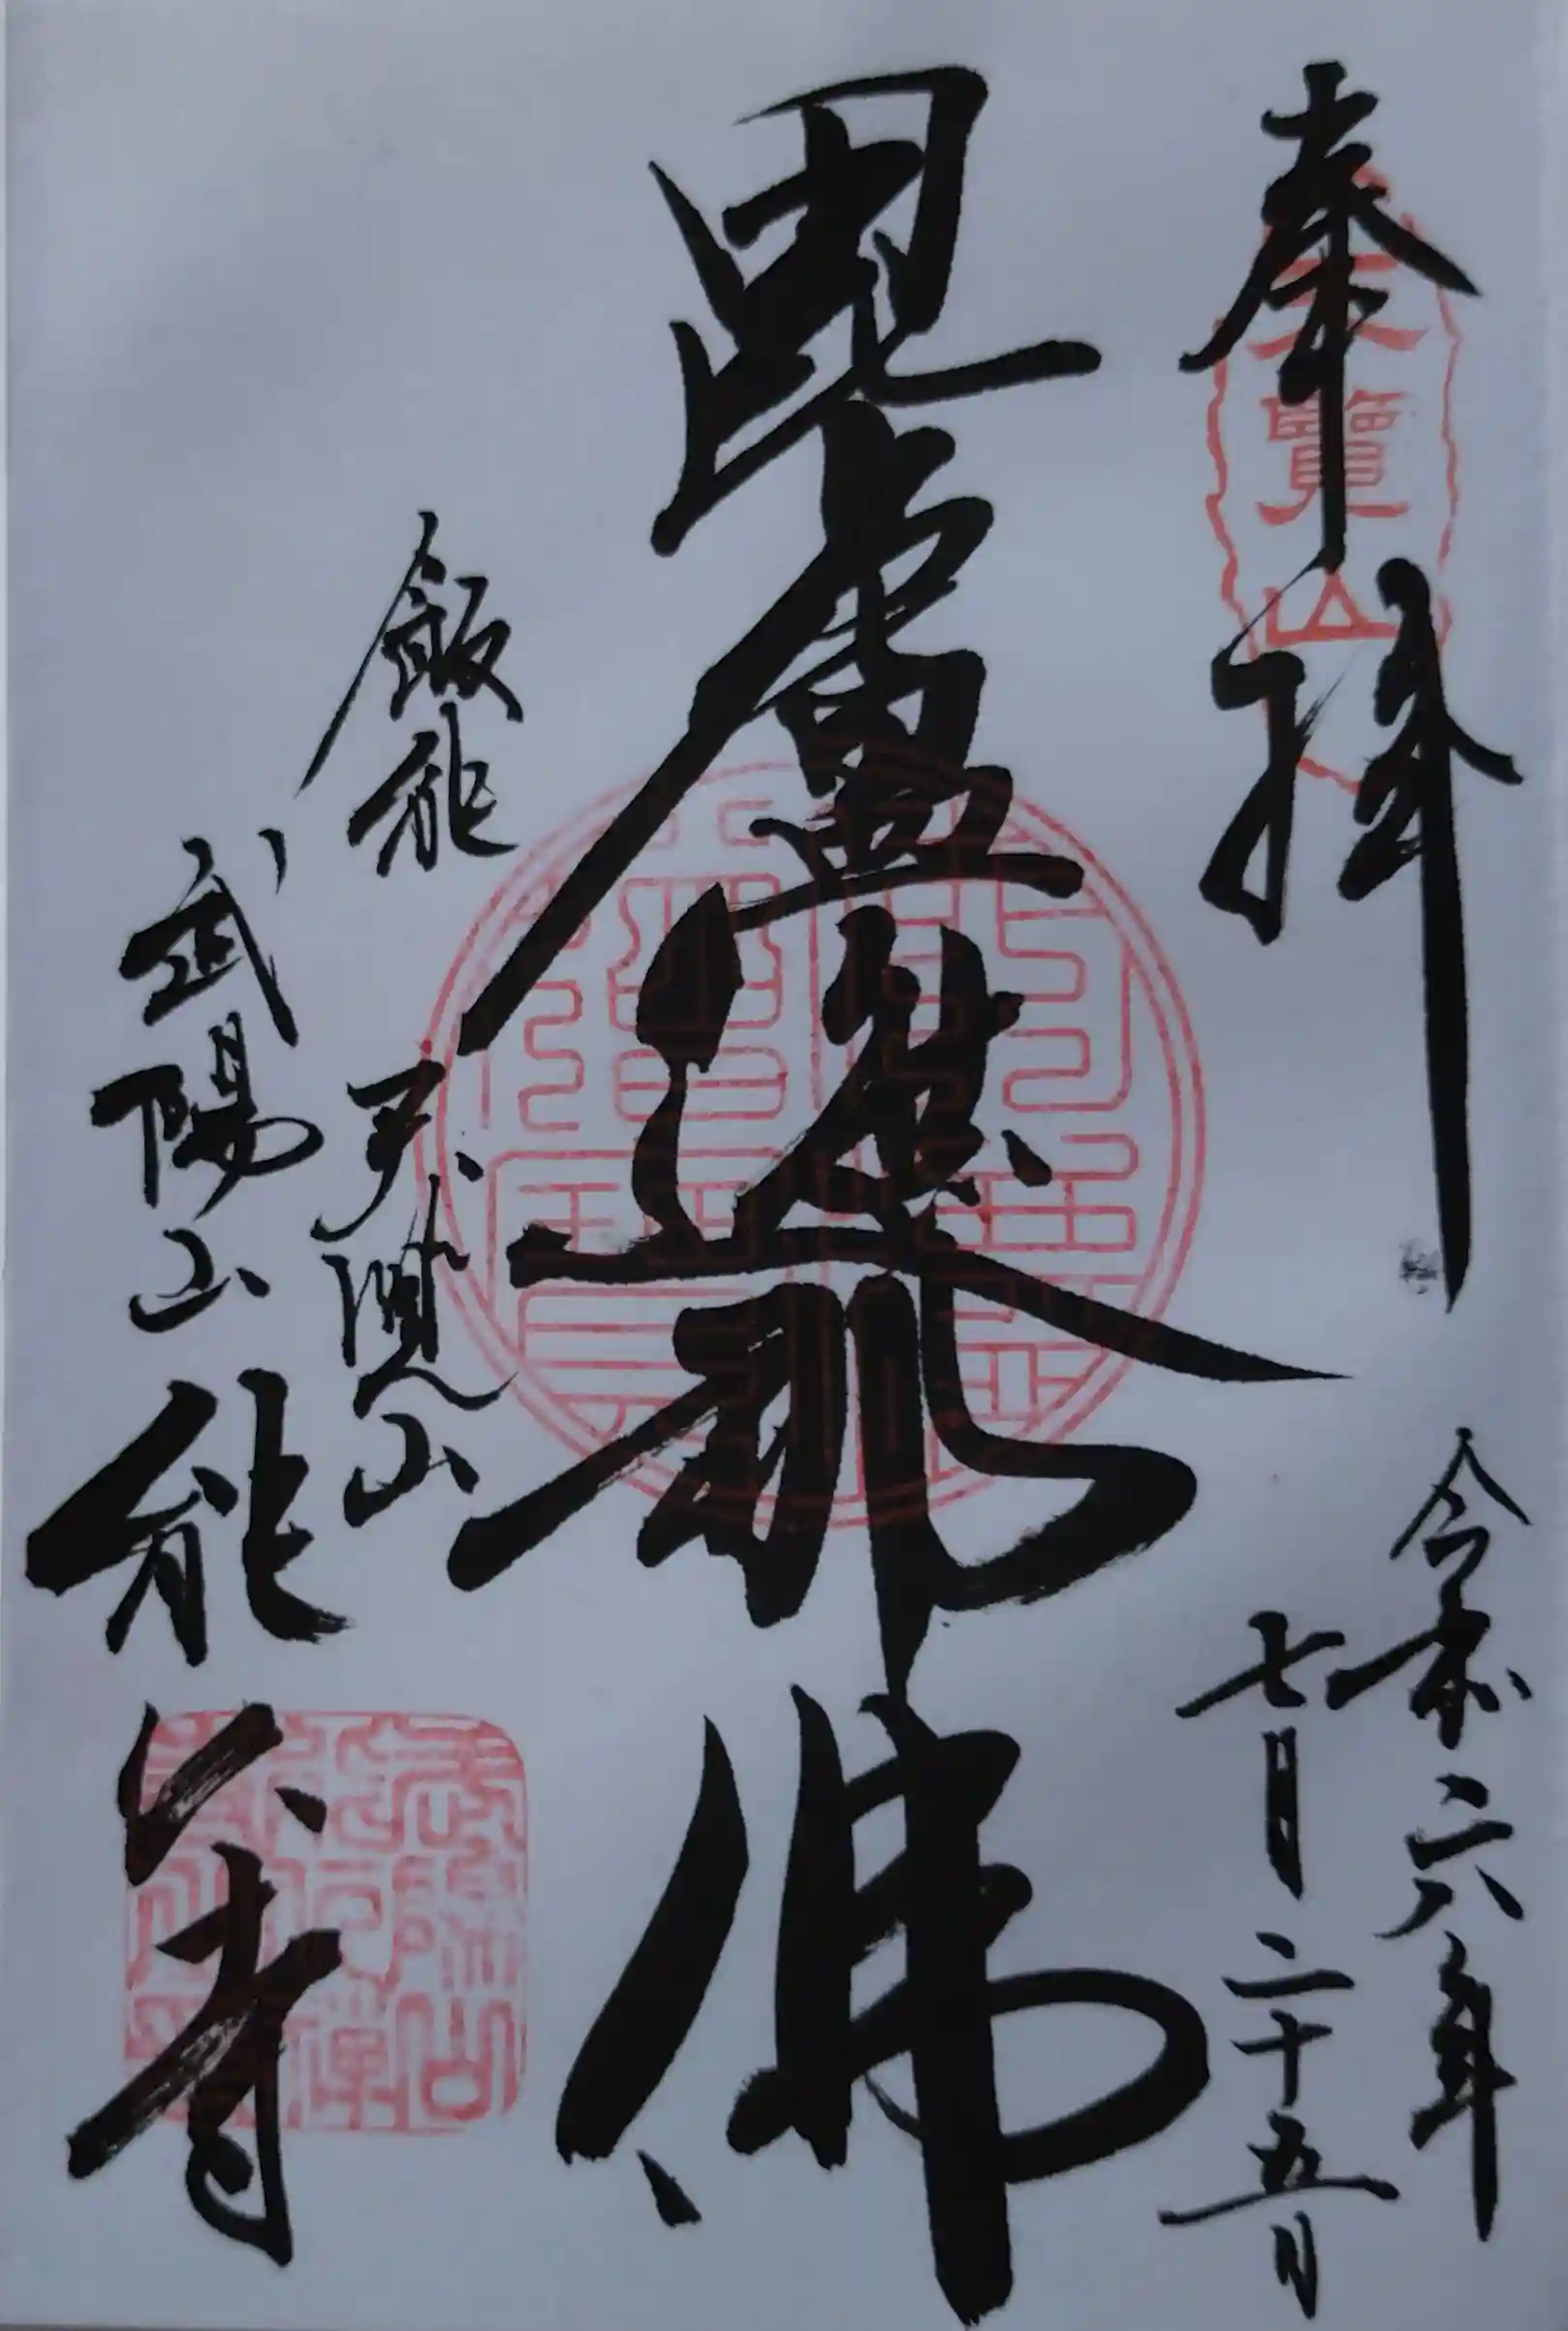 奉拝
天覧山
令和六年
七月二十五日
毘盧遮那佛
飯能
天覧山
武陽山能仁寺